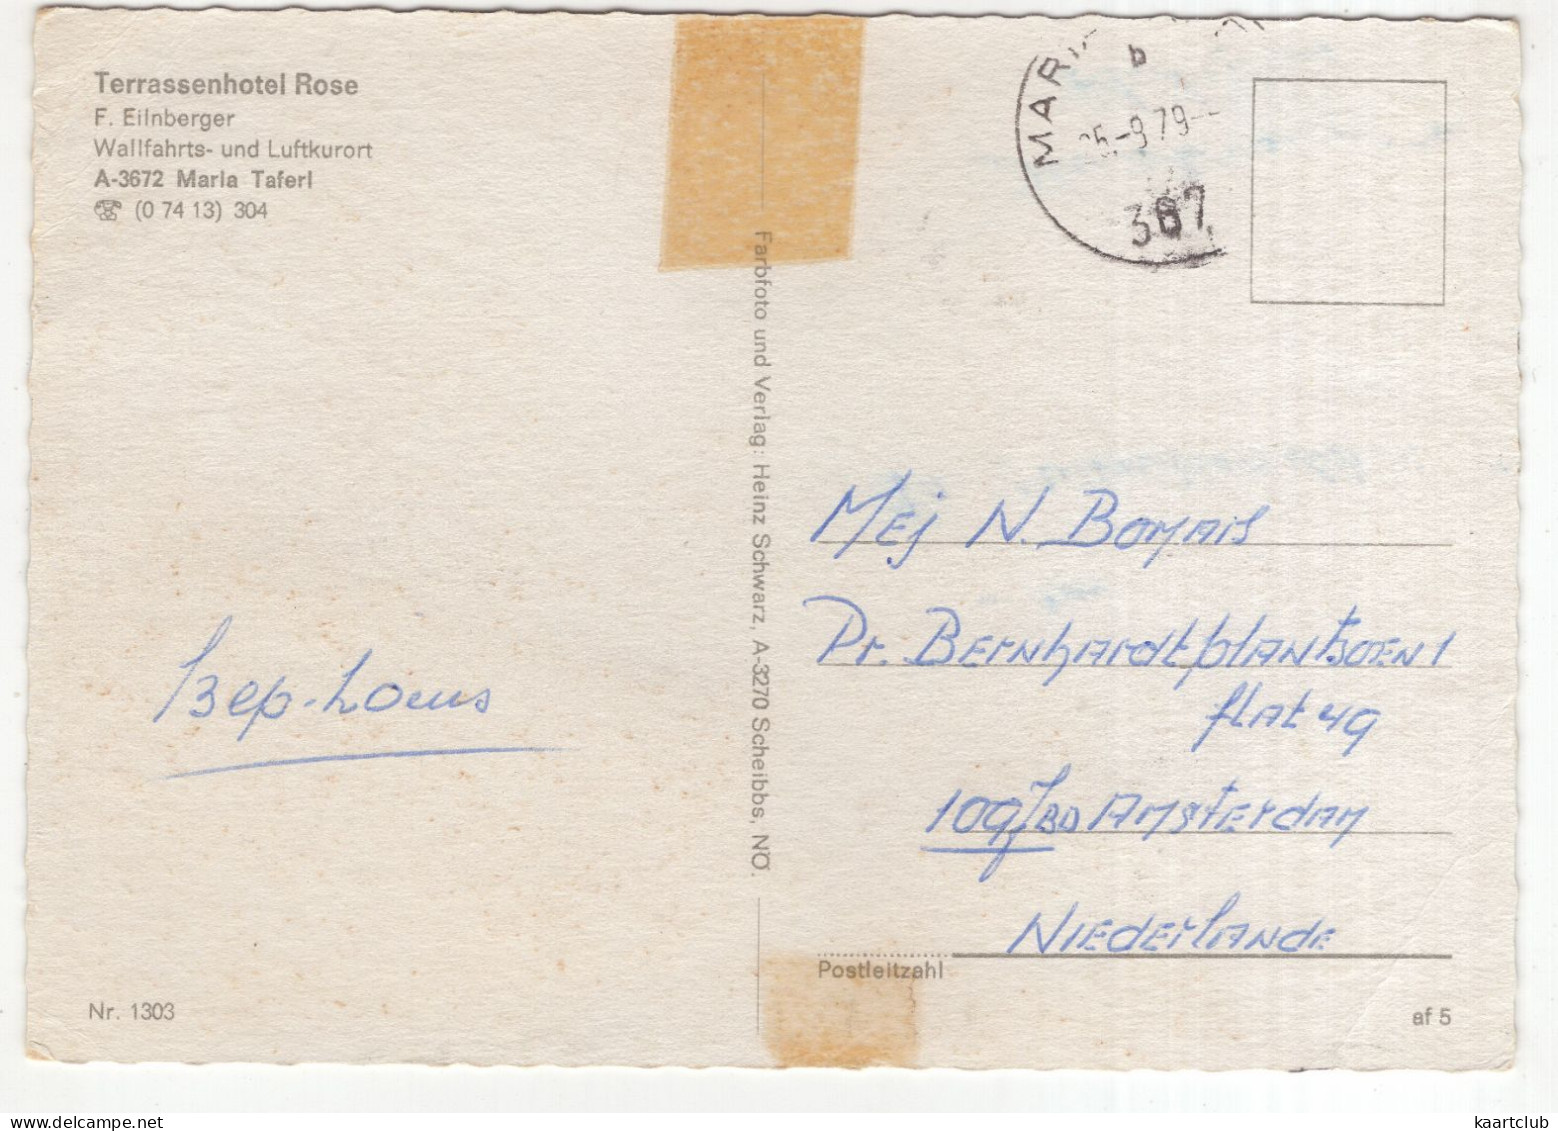 Terrassenhotel Rose
F. Eilnberger
Wallfahrts- und Luftkurort
A-3672 Maria Taferl
☎ (0 74 13) 304
Bep-Loeus
Nr. 1303
Farbfoto und Verlag: Heinz Schwarz, A-3270 Scheibbs, NÖ.
b
-9.79
367
Mej N. Bomais
Pr. Bernhardtplantsoen 1
flat 49
1097 BD Amsterdam
Niederlande
Postleitzahl
af 5
delcampe.net
kaartclub